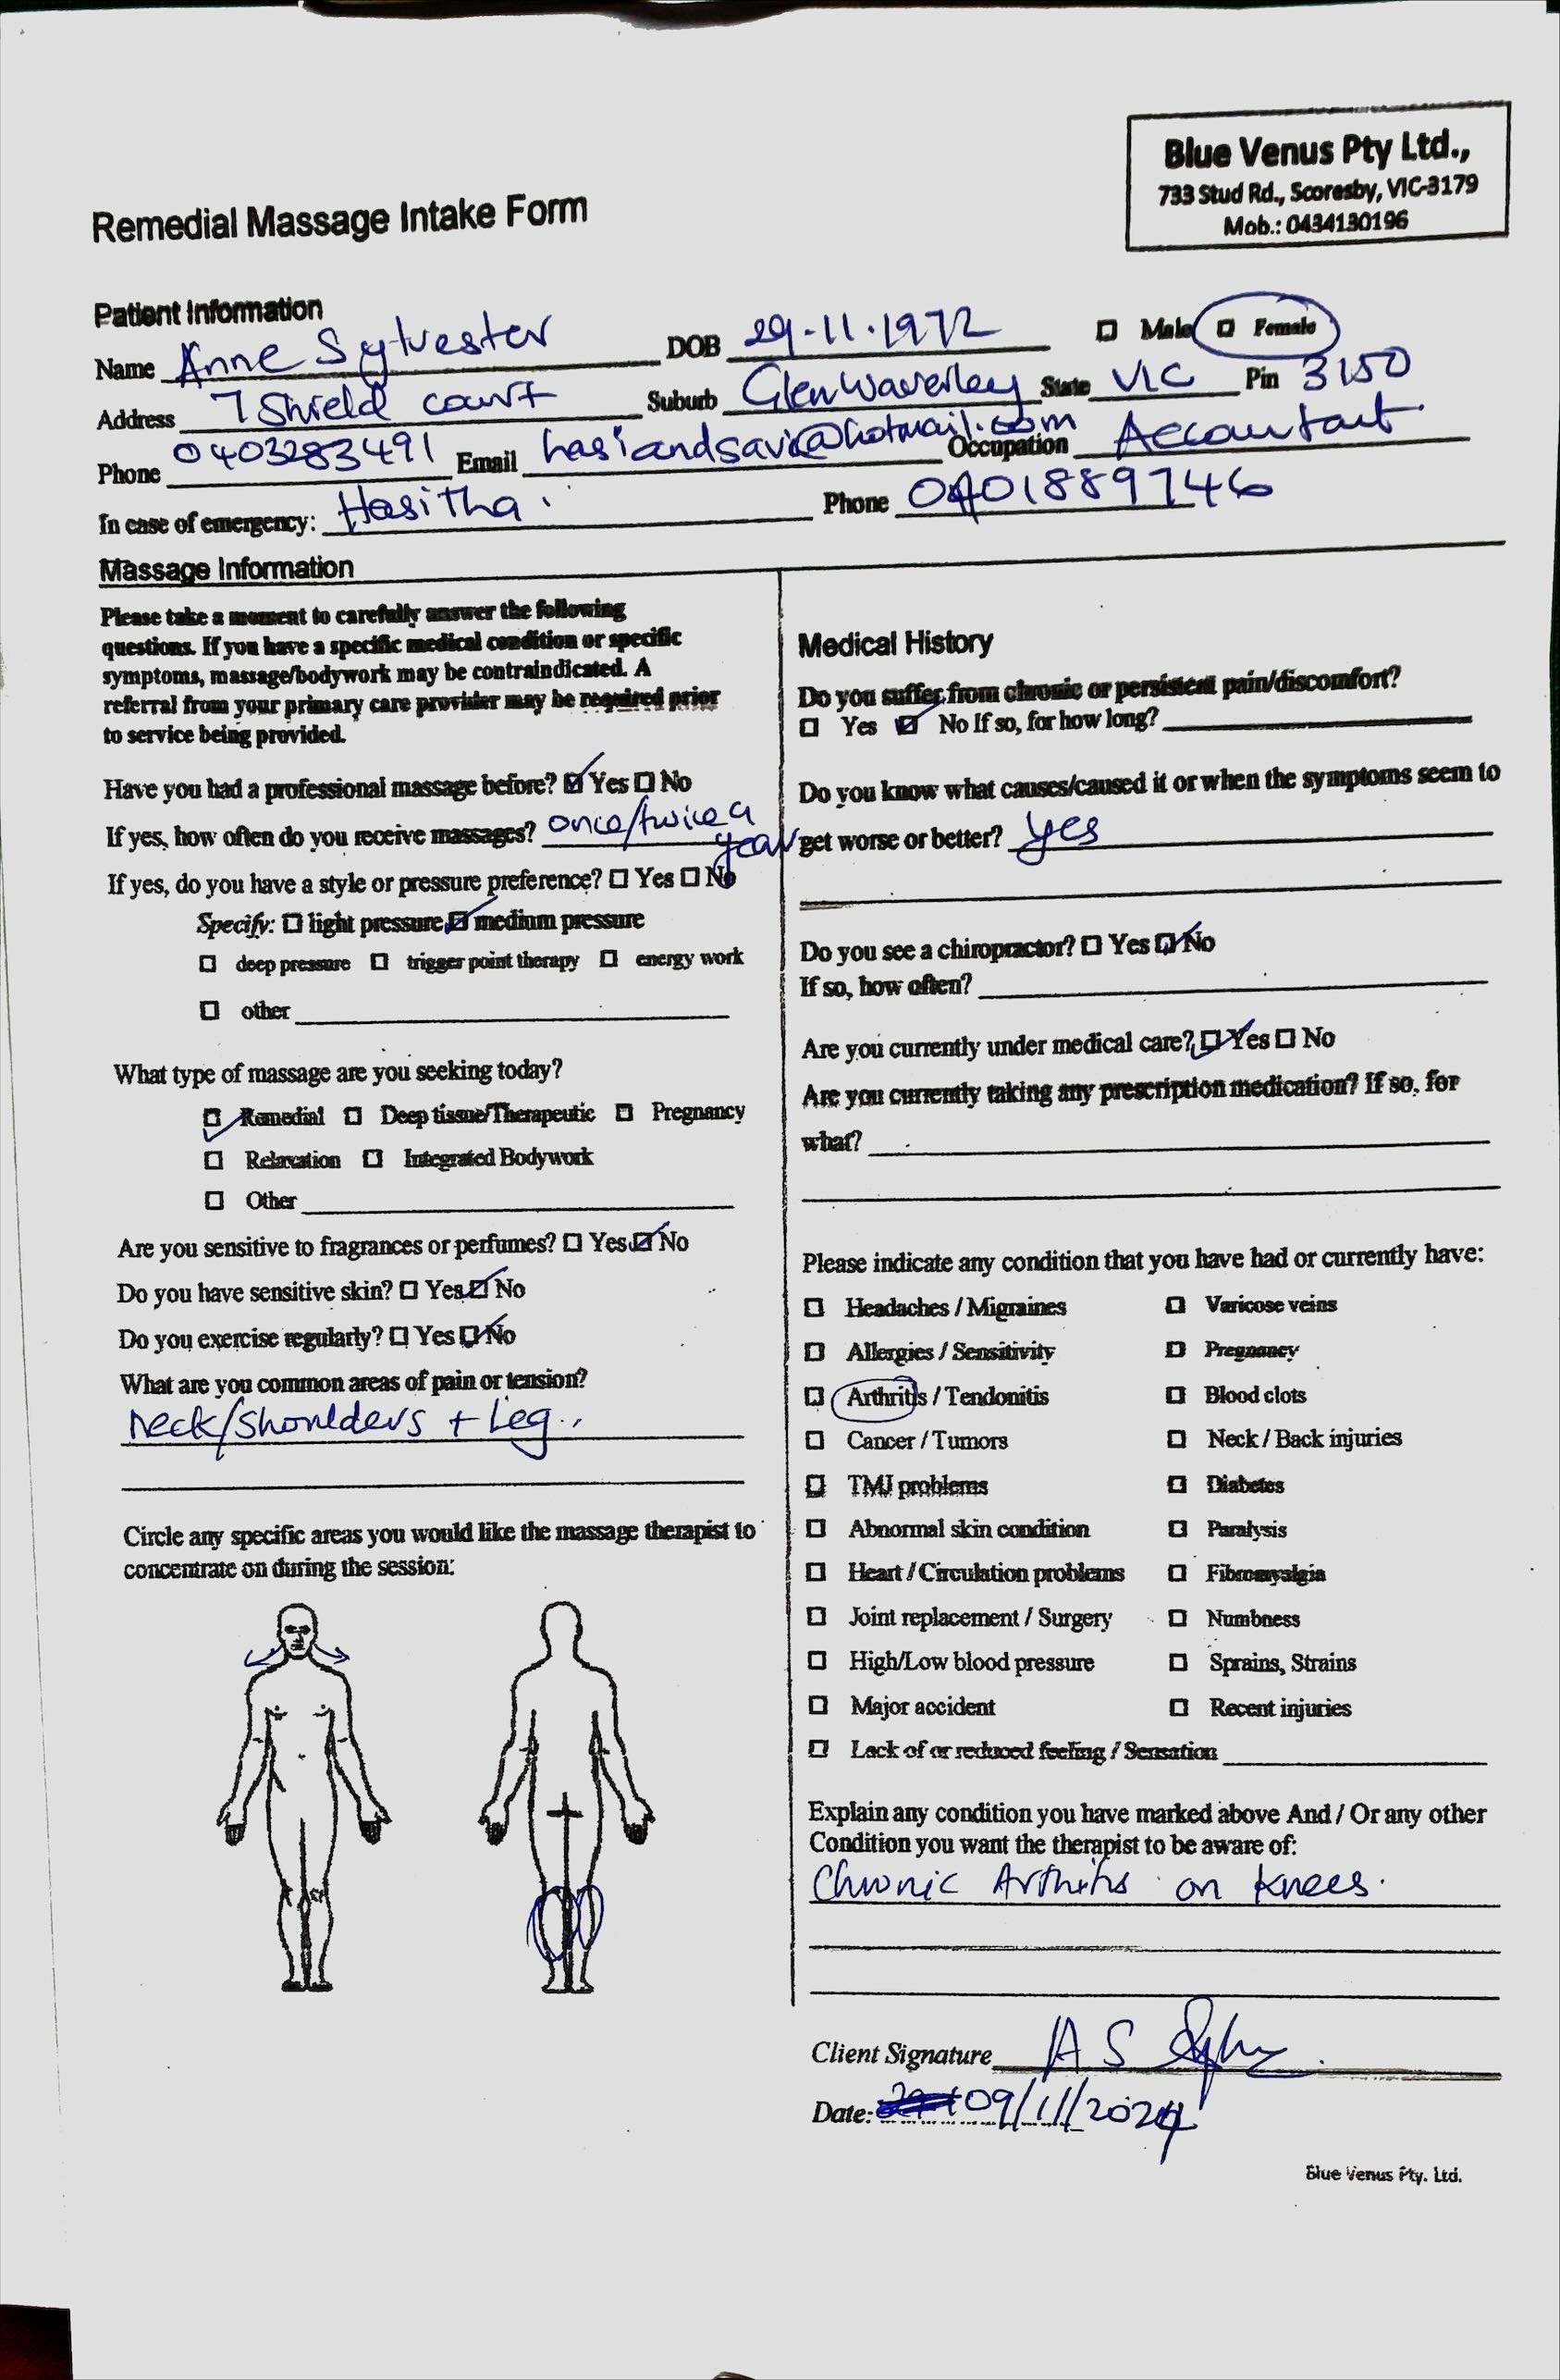 Blue Venus Pty Ltd.,
733 Stud Rd., Scoresby, VIC-3179
Mob.: 0434130196
Remedial Massage Intake Form
Patient Information
Name Anne Sylvester DOB 29-11-1972 ☐ Male ☐ Female
Address 7 Shield court Suburb Glen Waverley State VIC Pin 3150
Phone 0403283491 Email hasiandsavi@hotmail.com Occupation Accountant
In case of emergency: Hasitha Phone 0401889746
Massage Information
Please take a moment to carefully answer the following
questions. If you have a specific medical condition or specific
symptoms, massage/bodywork may be contraindicated. A
referral from your primary care provider may be required prior
to service being provided.
Have you had a professional massage before? ☑ Yes ☐ No
If yes, how often do you receive massages? once/twice a
year
If yes, do you have a style or pressure preference? ☐ Yes ☐ No
Specify: ☐ light pressure ☑ medium pressure
☐ deep pressure ☐ trigger point therapy ☐ energy work
☐ other
What type of massage are you seeking today?
☑ Remedial ☐ Deep tissue/Therapeutic ☐ Pregnancy
☐ Relaxation ☐ Integrated Bodywork
☐ Other
Are you sensitive to fragrances or perfumes? ☐ Yes ☑ No
Do you have sensitive skin? ☐ Yes ☑ No
Do you exercise regularly? ☐ Yes ☑ No
What are you common areas of pain or tension?
Neck/Shoulders + Leg.
Circle any specific areas you would like the massage therapist to
concentrate on during the session:
Medical History
Do you suffer from chronic or persistent pain/discomfort?
☐ Yes ☑ No If so, for how long?
Do you know what causes/caused it or when the symptoms seem to
get worse or better? yes
Do you see a chiropractor? ☐ Yes ☑ No
If so, how often?
Are you currently under medical care? ☑ Yes ☐ No
Are you currently taking any prescription medication? If so, for
what?
Please indicate any condition that you have had or currently have:
☐ Headaches / Migraines ☐ Varicose veins
☐ Allergies / Sensitivity ☐ Pregnancy
☐ Arthritis / Tendonitis ☐ Blood clots
☐ Cancer / Tumors ☐ Neck / Back injuries
☐ TMJ problems ☐ Diabetes
☐ Abnormal skin condition ☐ Paralysis
☐ Heart / Circulation problems ☐ Fibromyalgia
☐ Joint replacement / Surgery ☐ Numbness
☐ High/Low blood pressure ☐ Sprains, Strains
☐ Major accident ☐ Recent injuries
☐ Lack of or reduced feeling / Sensation
Explain any condition you have marked above And / Or any other
Condition you want the therapist to be aware of:
Chronic Arthritis on Knees.
Client Signature A S
Date: 09/11/2024
Blue Venus Pty. Ltd.